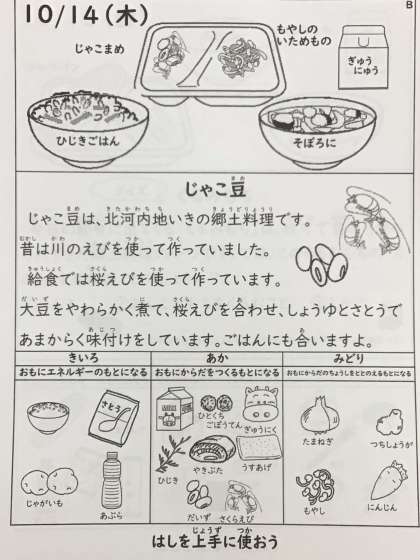 10/14(木)
B
じゃこまめ
もやしの
いためもの
ぎゅう
にゅう
ひじきごはん
そぼろに
じゃこ豆
じゃこ豆は、北河内地いきの郷土料理です。
昔は川のえびを使って作っていました。
給食では桜えびを使って作っています。
大豆をやわらかく煮て、桜えびを合わせ、しょうゆとさとうで
あまからく味付けをしています。ごはんにも合いますよ。
きいろ
おもにエネルギーのもとになる
さとう
じゃがいも
あぶら
あか
おもにからだをつくるもとになる
ひとくち
ごぼうてん
ぎゅうにく
ひじき
やきぶた
うすあげ
だいず
さくらえび
みどり
おもにからだのちょうしをととのえるもとになる
たまねぎ
つちしょうが
もやし
にんじん
はしを上手に使おう